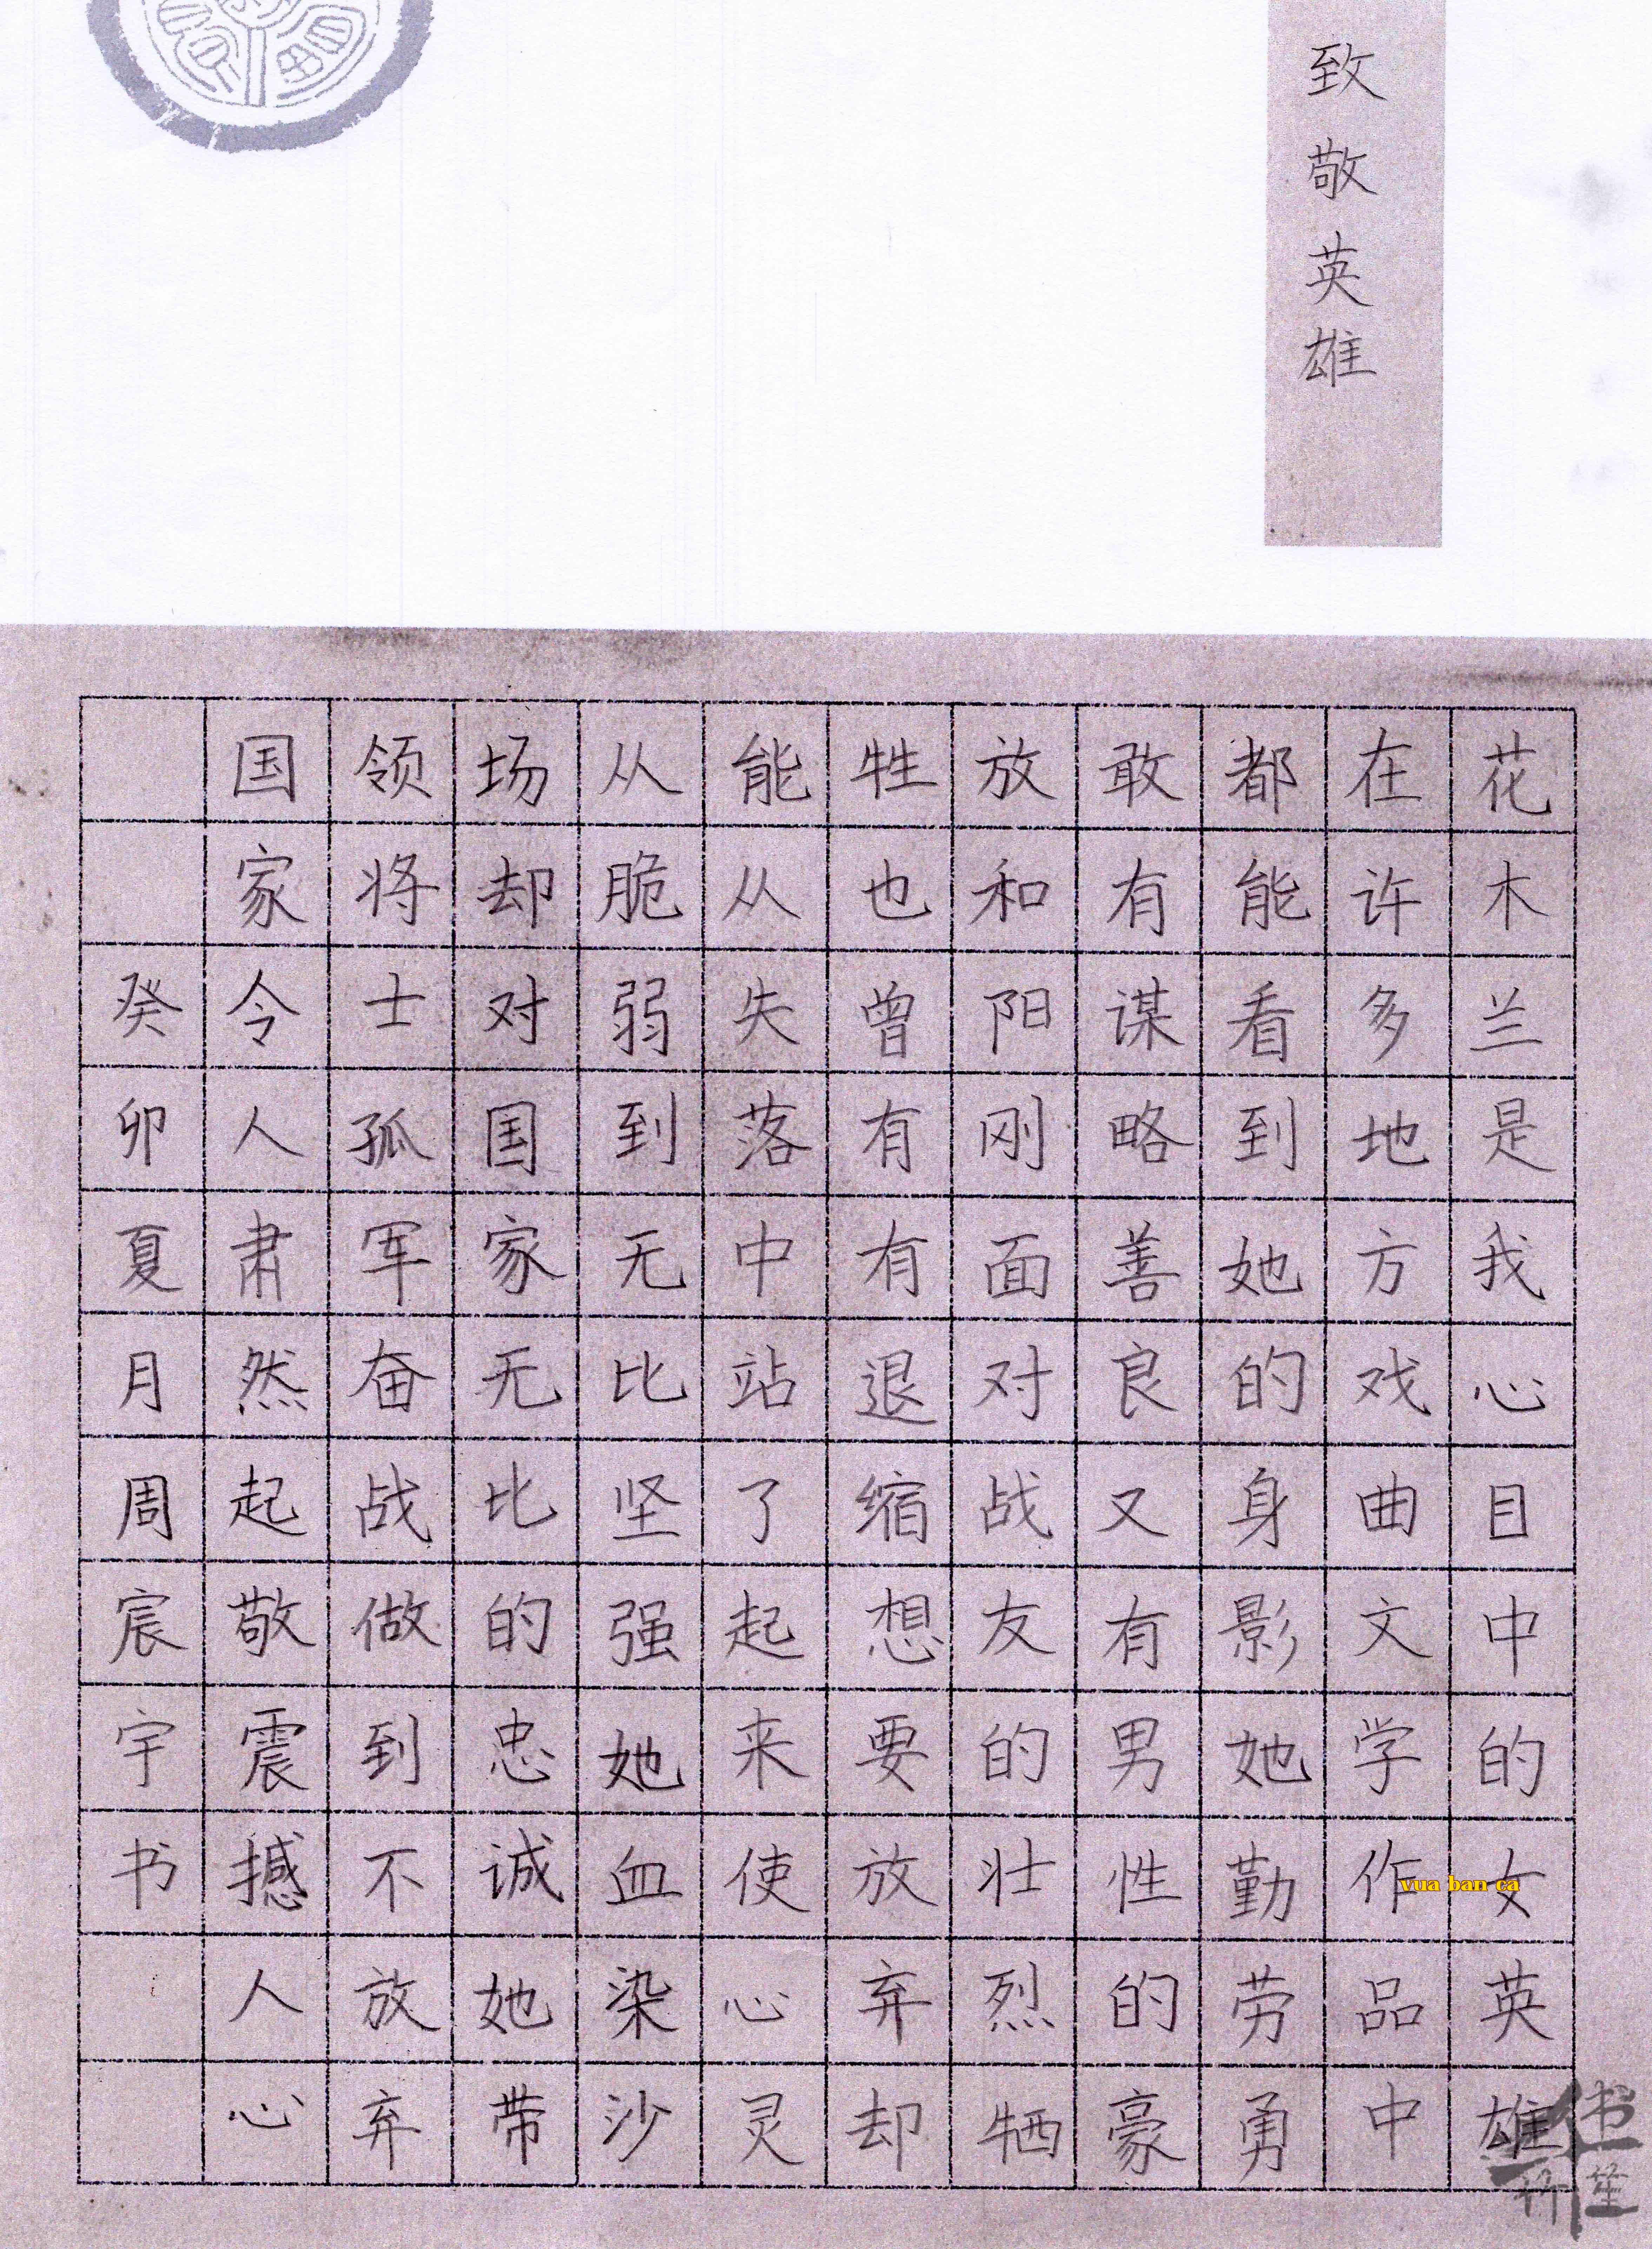 致敬英雄
花木兰是我心目中的女英雄
在许多地方戏曲文学作品中
都能看到她的身影她勤劳勇
敢有谋略善良又有男性的豪
放和阳刚面对战友的壮烈牺
牲也曾有有退缩想要放弃却
能从失落中站了起来使心灵
从脆弱到无比坚强她血染沙
场却对国家无比的忠诚她带
领将士孤军奋战做到不放弃
国家令人肃然起敬震撼人心
癸卯夏月周宸宇书
vua ban ca